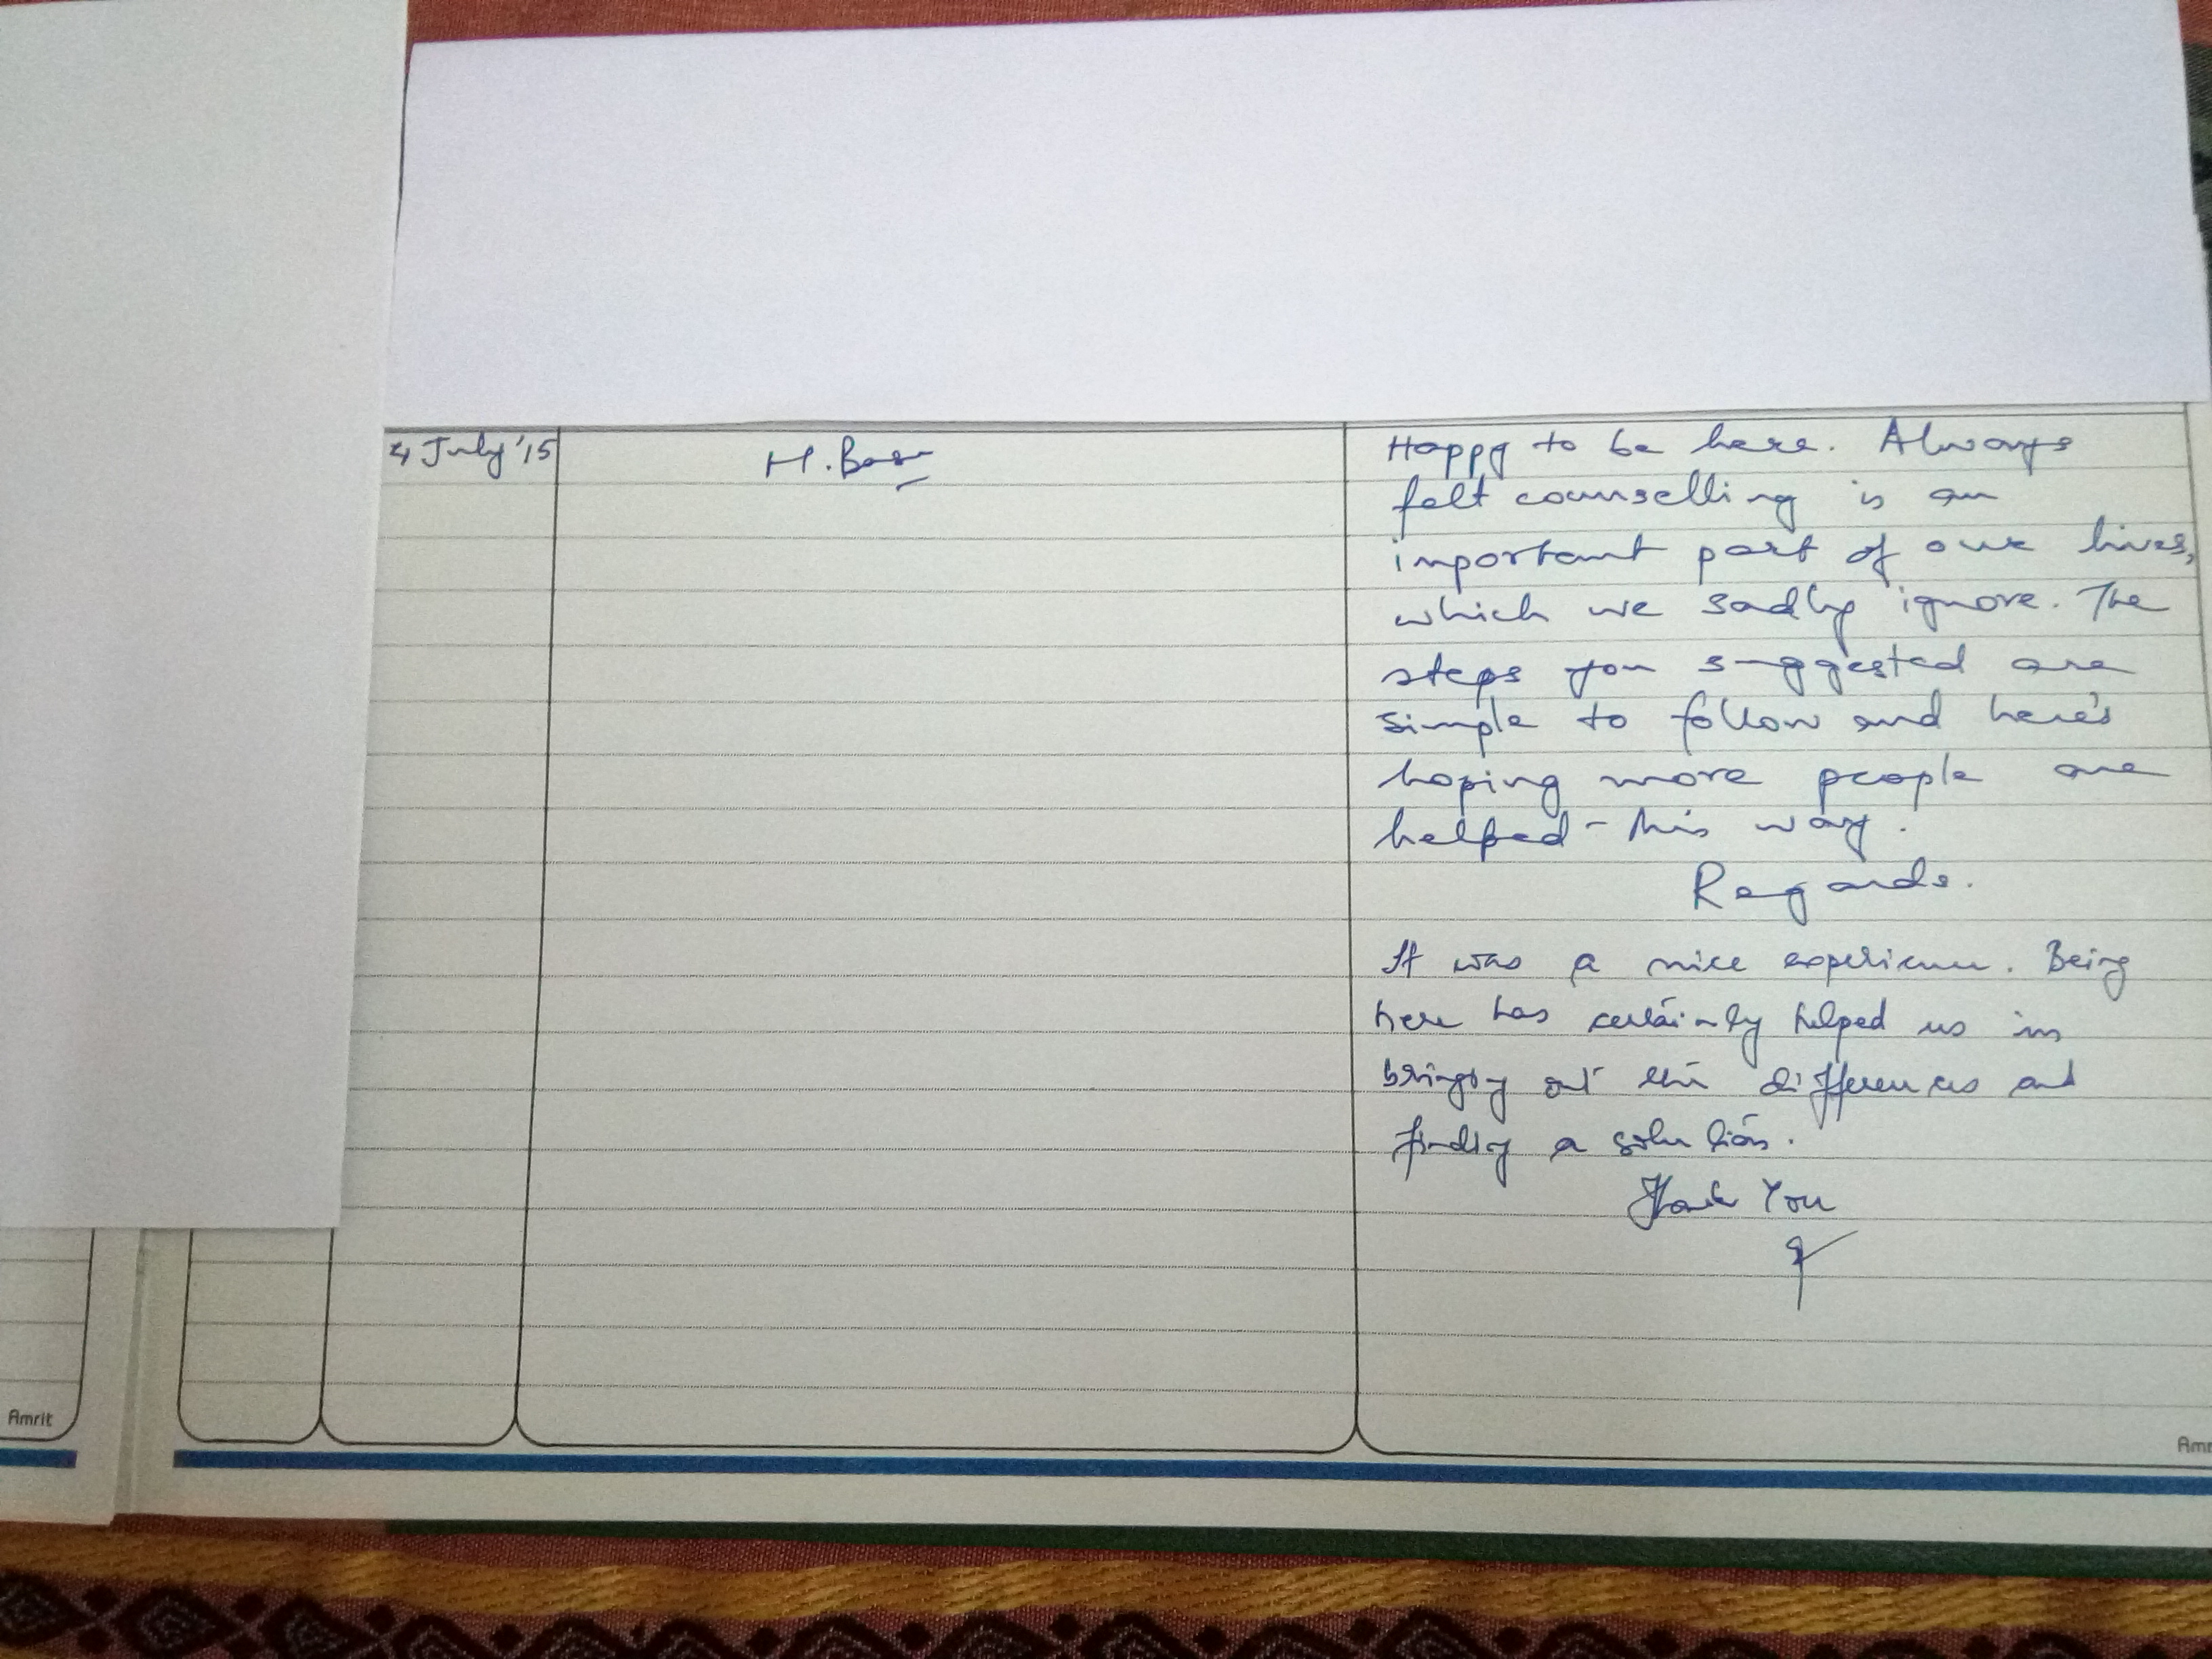 4 July '15
M. Bose
Happy to be here. Always
felt counselling is an
important part of our lives,
which we sadly ignore. The
steps you suggested are
simple to follow and here's
hoping more people are
helped this way.
Regards.
It was a nice experience. Being
here has certainly helped us in
bringing out the differences and
finding a solution.
Thank You
Amrit
Amr